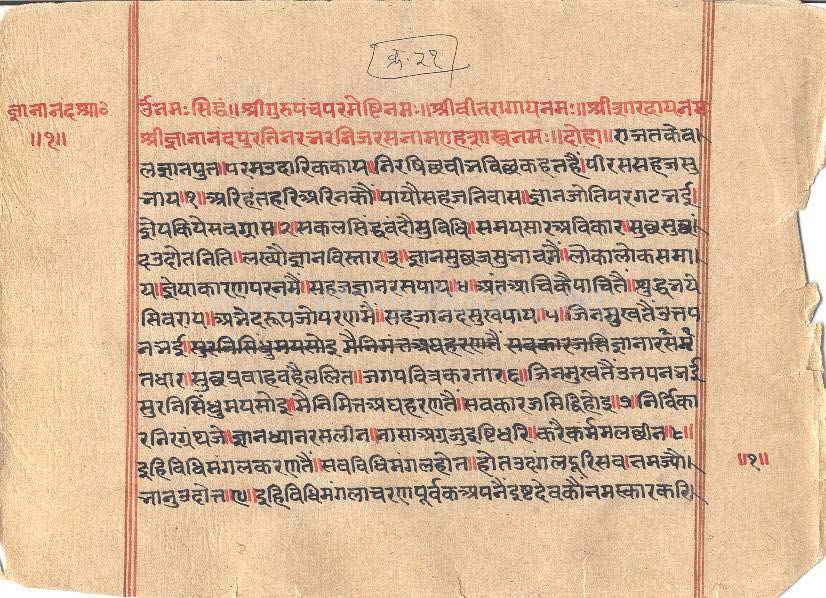 क्र. २१
ज्ञानानंदश्रा०
॥१॥
उँनमः सिद्धं॥श्रीगुरुपंचपरमेष्टिनमः॥श्रीवीतरागायनमः॥श्रीशारदायनमः
श्रीज्ञानानंदपूरतिनरभरनिजरसनामशास्त्रनमः॥दोहा॥राजतकेव।
लज्ञानपुत।परमउदारिककाय।निरषिछवीभविछकहतहैं।पीरससहजसु
भाय॥१॥अरिहंतहरिअरिनकौं।पायौसहजनिवास।ज्ञानजोतिपरगटभई।
ज्ञेयकियेसवग्रास॥२॥सकलसिद्धवंदौसुविधि।समयसारअविकार।सुछसुछं।
दउदोतनिति।लख्यौज्ञानविस्तार॥३॥ज्ञानसुछजसुभावमैं।लोकालोकसमा।
य॥ज्ञेयाकारणपरनमैं।सहजज्ञानरसपाय॥४॥अंतआचिकैपाचितैं।शुद्धभये
सिवराय॥अभेदरूपजोपरणमैं।सहजानंदसुखपाय॥५॥जिनमुखतैंउतप
नभई
तधार॥सुछप्रवाहवहैललित॥जगपवित्रकरतार॥६॥जिनमुखतैंउतपनभई
सुरभिसिंधुमयसोइ॥मैनिमित्तअघहरणतैं॥सवकारजसिद्धिहोइ॥७॥निर्विका
रनिरग्रंथजे॥ज्ञानध्यानरसलीन॥नासाअग्रजुद्दष्टिधरि॥करैकर्ममलछीन॥८॥
इहिविधिमंगलकरणतैं॥सवविधिमंगलहोत॥होतउदंगलदूरिसव॥तमज्यौं।
भानुउदोत॥९॥इहिविधिमंगलाचरणपूर्वकअपनैंइष्टदेवकौंनमस्कारकरि।
॥१॥